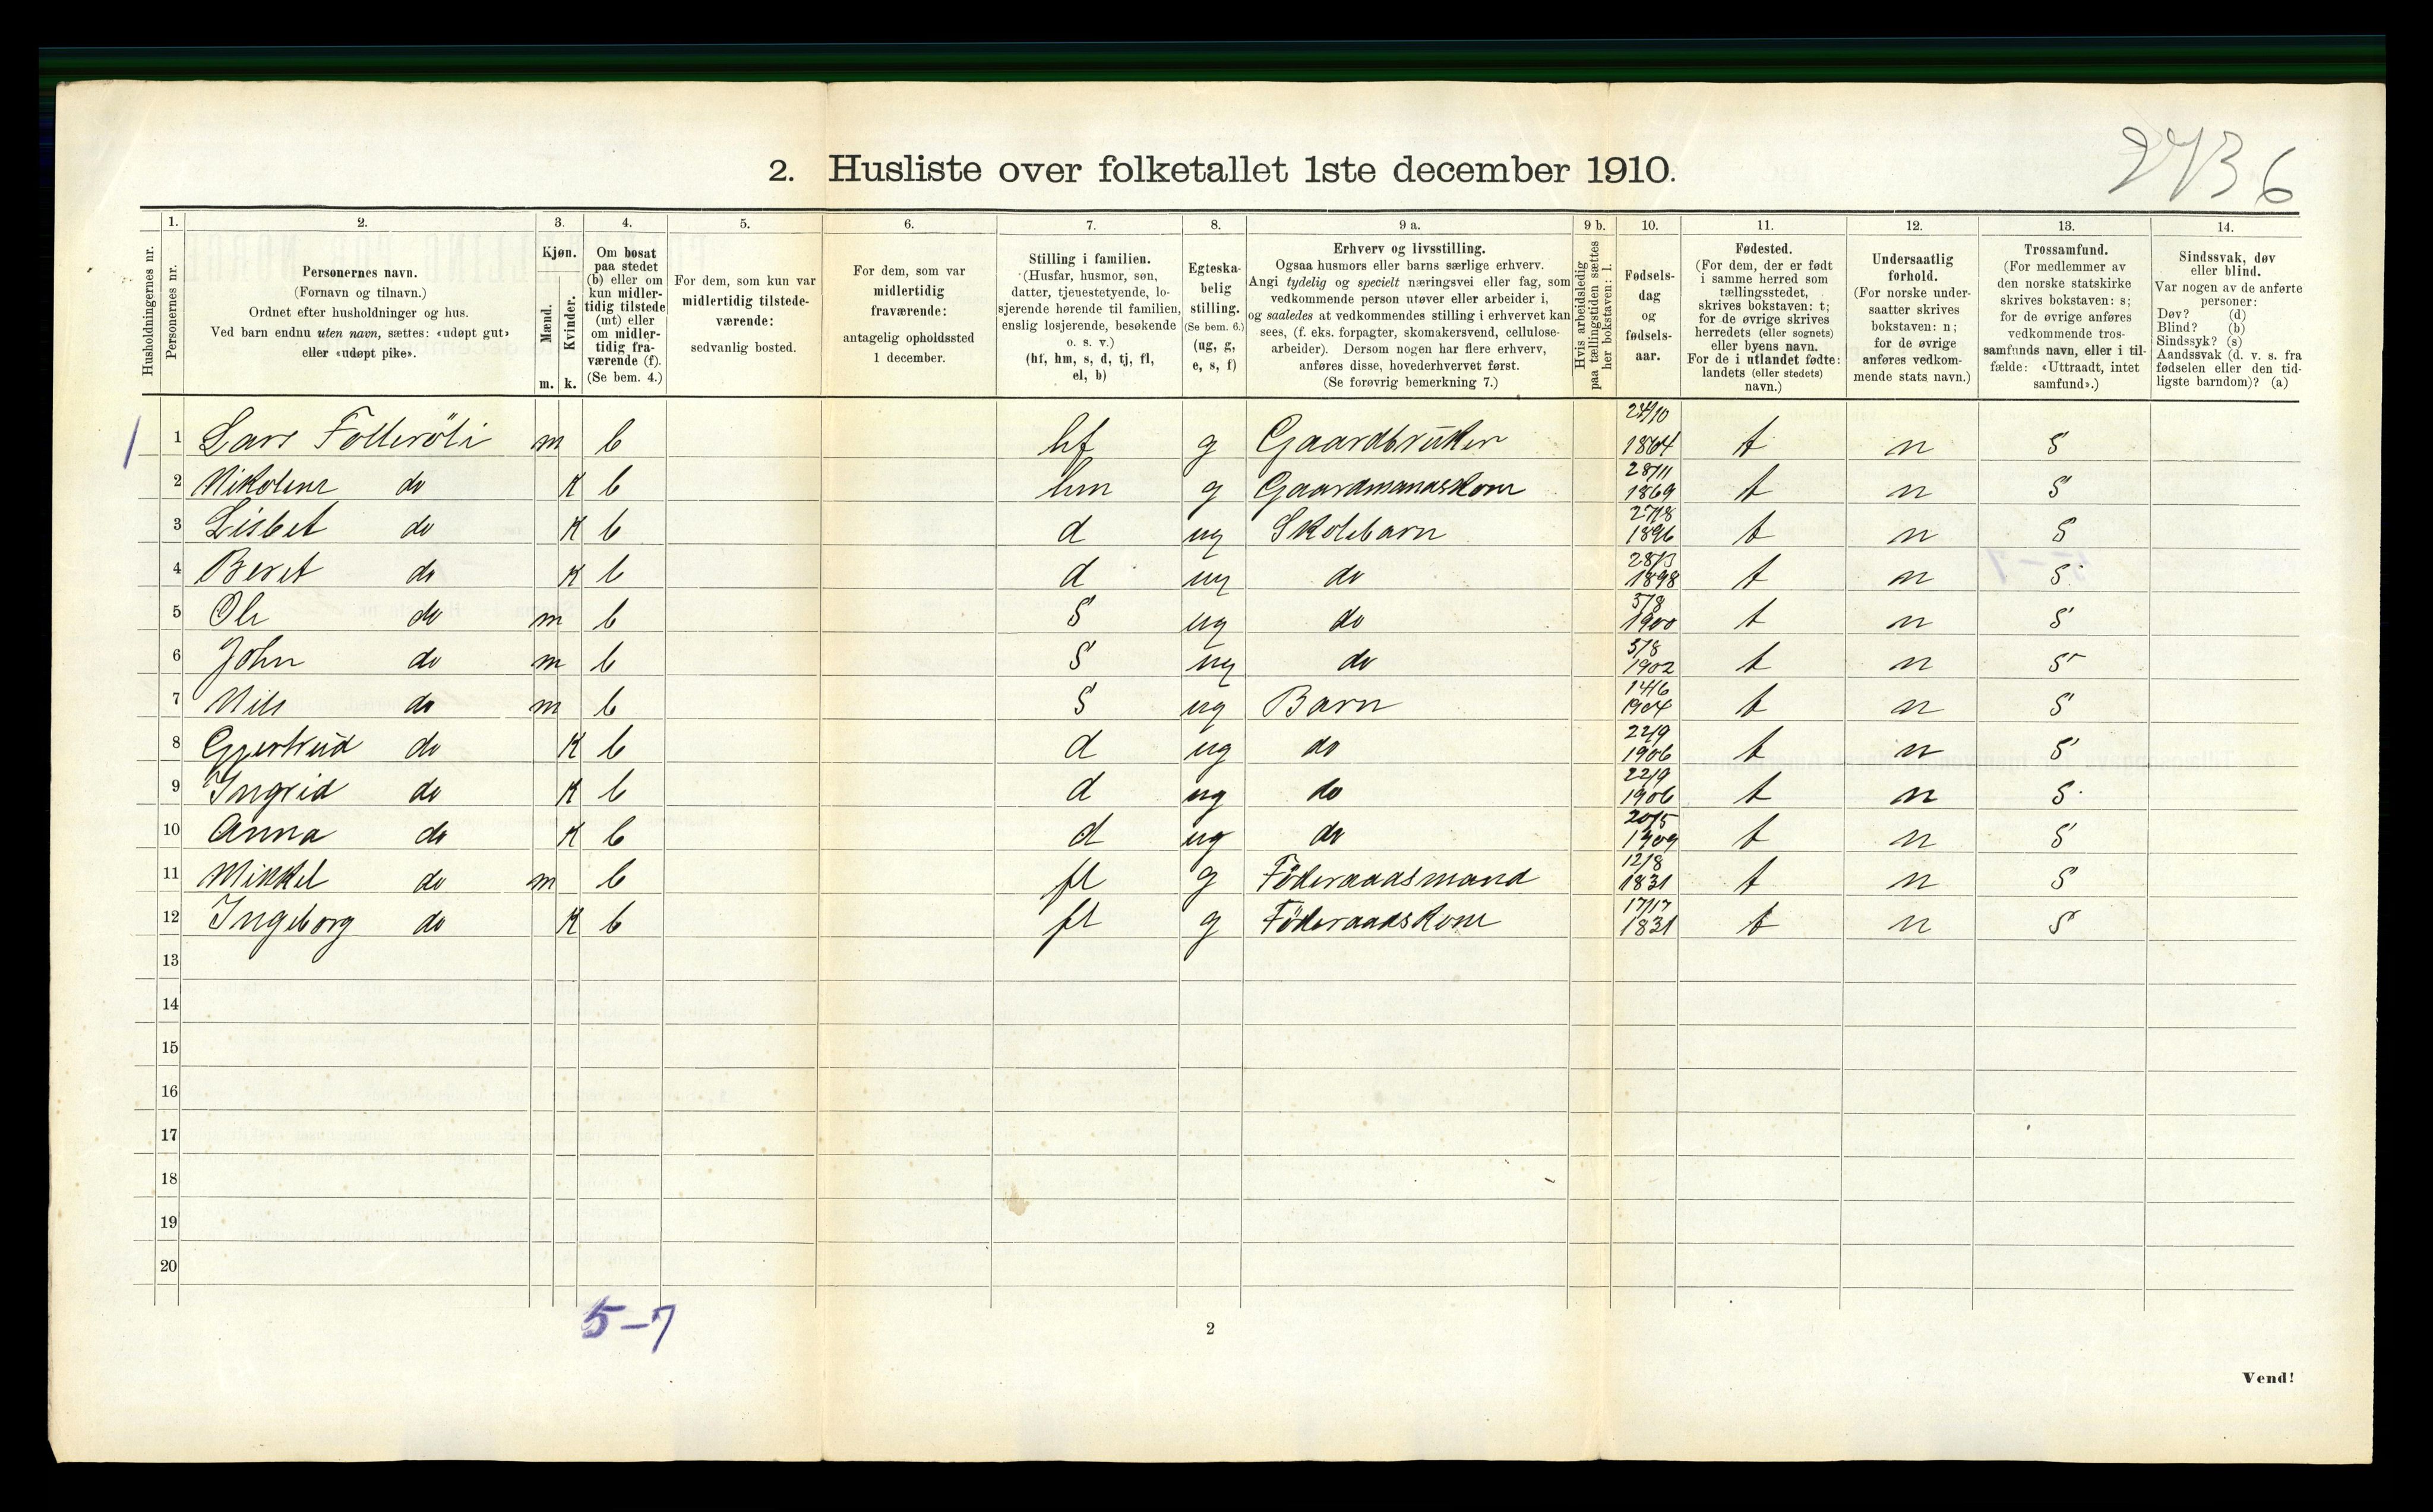 2736
2. Husliste over folketallet 1ste december 1910.
1. 2. 3. 4. 5. 6. 7. 8. 9 a. 9 b. 10. 11. 12. 13. 14.
Husholdningernes nr.
Personernes nr.
Personernes navn.
(Fornavn og tilnavn.)
Ordnet efter husholdninger og hus.
Ved barn endnu uten navn, sættes: «udøpt gut»
eller «udøpt pike».
Kjøn.
Mænd.
Kvinder.
m. k.
Om bosat
paa stedet
(b) eller om
kun midler-
tidig tilstede
(mt) eller
om midler-
tidig fra-
værende (f).
(Se bem. 4.)
For dem, som kun var
midlertidig tilstede-
værende:
sedvanlig bosted.
For dem, som var
midlertidig
fraværende:
antagelig opholdssted
1 december.
Stilling i familien.
(Husfar, husmor, søn,
datter, tjenestetyende, lo-
sjerende hørende til familien,
enslig losjerende, besøkende
o. s. v.)
(hf, hm, s, d, tj, fl,
el, b)
Egteska-
belig
stilling.
(Se bem. 6.)
(ug, g,
e, s, f)
Erhverv og livsstilling.
Ogsaa husmors eller barns særlige erhverv.
Angi tydelig og specielt næringsvei eller fag, som
vedkommende person utøver eller arbeider i,
og saaledes at vedkommendes stilling i erhvervet kan
sees, (f. eks. forpagter, skomakersvend, cellulose-
arbeider). Dersom nogen har flere erhverv,
anføres disse, hovederhvervet først.
(Se forøvrig bemerkning 7.)
Hvis arbeidsledig
paa tællingstiden sættes
her bokstaven: l.
Fødsels-
dag
og
fødsels-
aar.
Fødested.
(For dem, der er født
i samme herred som
tællingsstedet,
skrives bokstaven: t;
for de øvrige skrives
herredets (eller sognets)
eller byens navn.
For de i utlandet fødte:
landets (eller stedets)
navn.)
Undersaatlig
forhold.
(For norske under-
saatter skrives
bokstaven: n;
for de øvrige
anføres vedkom-
mende stats navn.)
Trossamfund.
(For medlemmer av
den norske statskirke
skrives bokstaven: s;
for de øvrige anføres
vedkommende tros-
samfunds navn, eller i til-
fælde: «Uttraadt, intet
samfund».)
Sindssvak, døv
eller blind.
Var nogen av de anførte
personer:
Døv? (d)
Blind? (b)
Sindssyk? (s)
Aandssvak (d. v. s. fra
fødselen eller den tid-
ligste barndom)? (a)
1 1 Lars Folleröli m b hf g Gaardbruker 1864 t n S
2 Nikolene do K b hm g Gaardmandskone 28/11 1869 t n S
3 Lisbet do K b d ug Skolebarn 27/8 1896 t n S
4 Beret do K b d ug do 28/3 1898 t n S
5 Ole do m b S ug do 5/8 1900 t n S
6 John do m b S ug do 5/8 1902 t n S
7 Nils do m b S ug Barn 14/6 1904 t n S
8 Gjertrud do K b d ug do 22/9 1906 t n S
9 Ingrid do K b d ug do 22/9 1906 t n S
10 Anna do K b d ug do 20/5 1909 t n S
11 Mikkel do m b fl g Föderaadsmand 12/8 1831 t n S
12 Ingeborg do K b fl g Föderaadskone 1831 t n S
13
14
15
16
17
18
19
20
5-7
2
Vend!